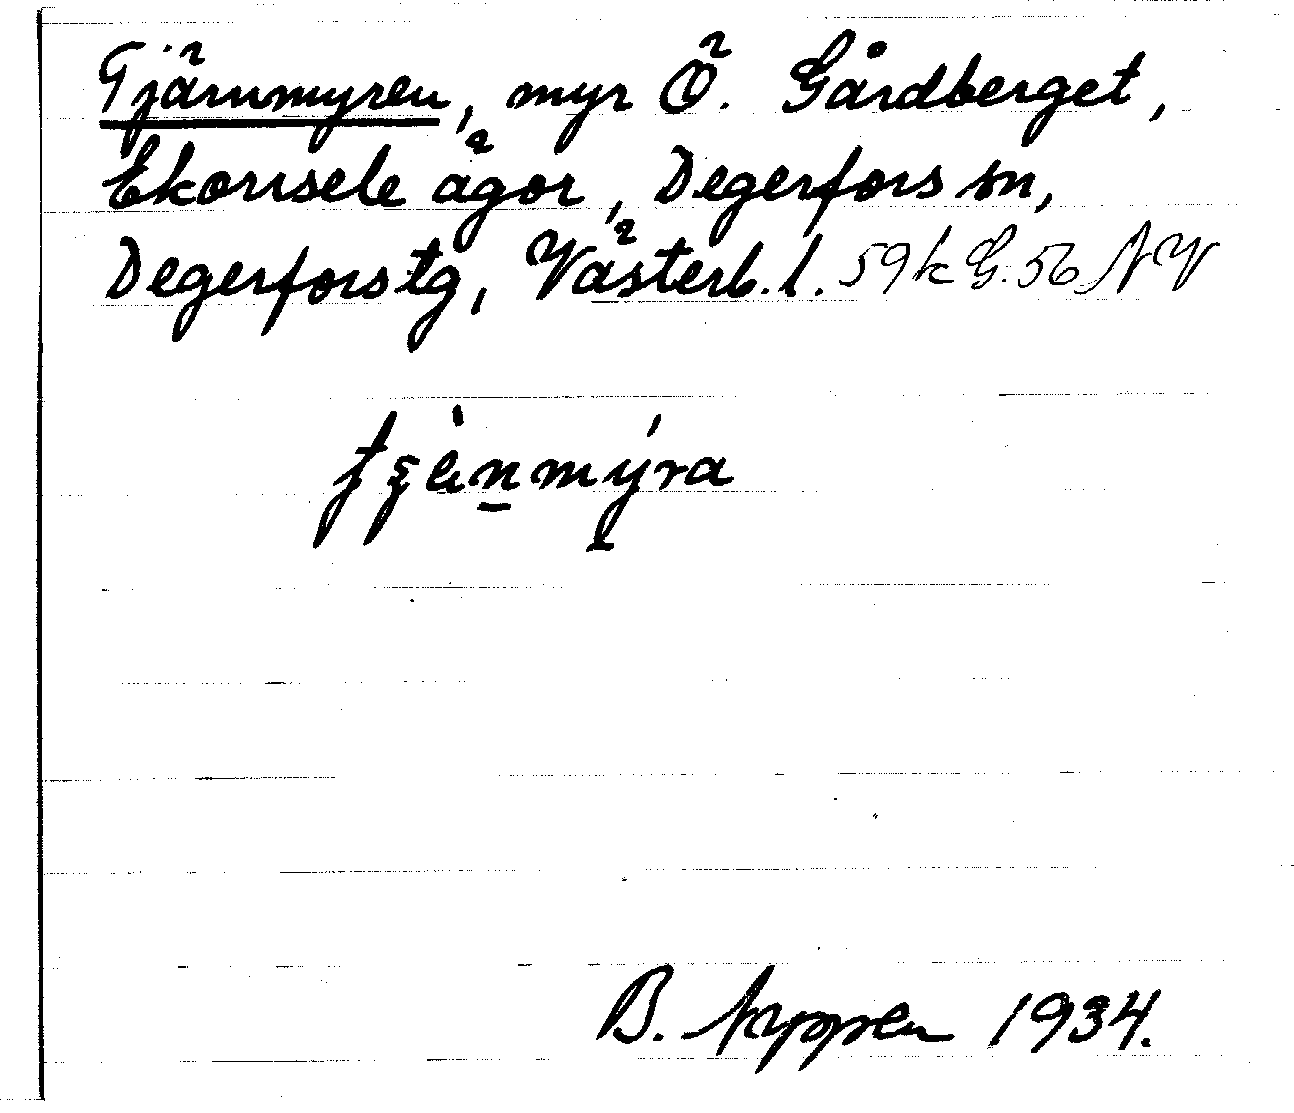 Tjärnmyren, myr Ö. Gårdberget,
Ekorrsele ägor, Degerfors sn,
Degerfors tg, Västerb. l. 59 k G. 56 NV
B. 1934.